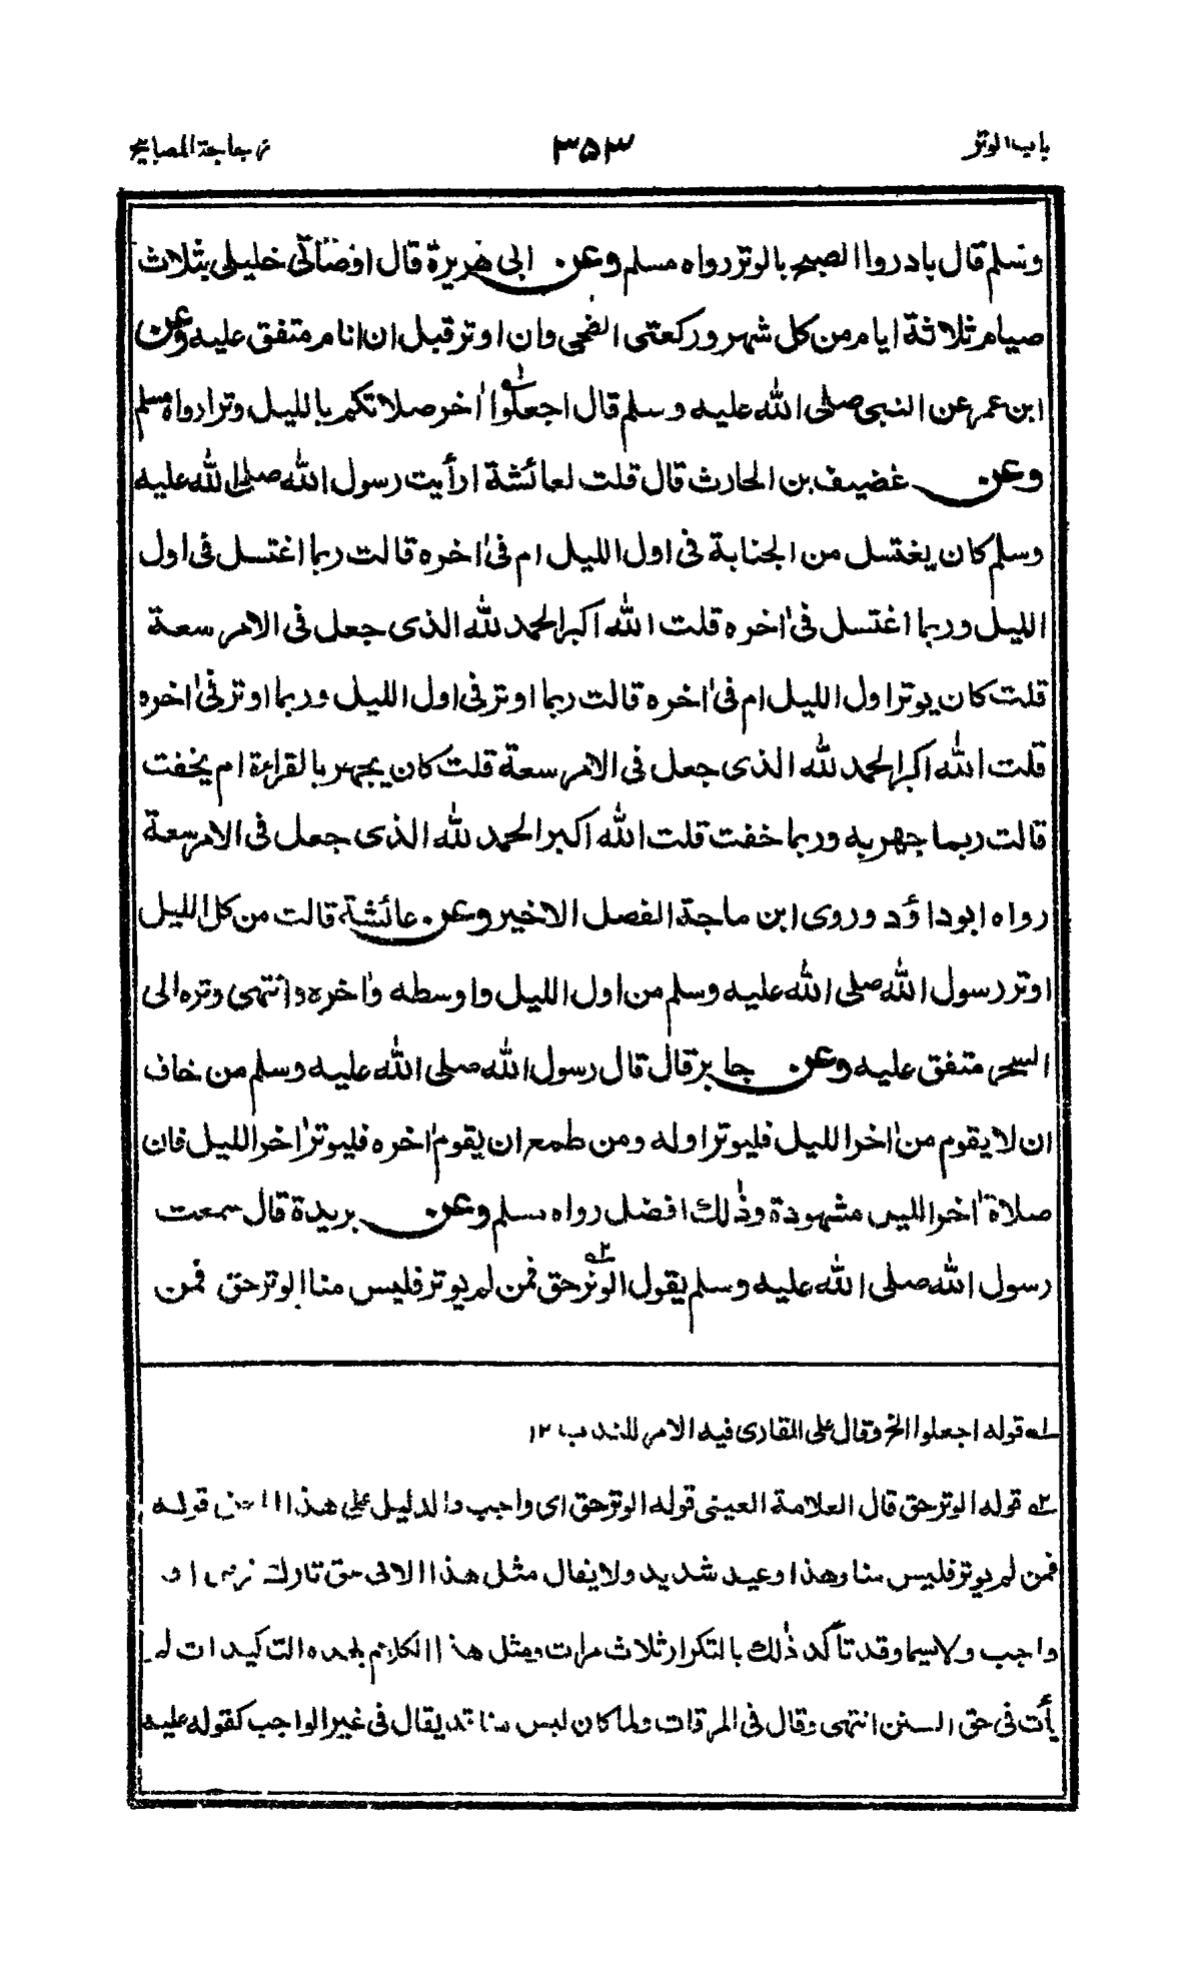 باب الوتر ۳۵۳ زجاجة المصابيح
وسلم قال بادروا الصبح بالوتر رواه مسلم وعن ابى هريرة قال اوصانى خليلى بثلاث
صيام ثلاثة ايام من كل شهر وركعتى الضحى وان اوتر قبل ان انام متفق عليه وعن
ابن عمر عن النبى صلى الله عليه وسلم قال اجعلوا اٰخر صلاتكم بالليل وترا رواه مسلم
وعن غضيف بن الحارث قال قلت لعائشة ارأيت رسول الله صلى الله عليه
وسلم كان يغتسل من الجنابة فى اول الليل ام فى اٰخره قالت ربما اغتسل فى اول
الليل وربما اغتسل فى اٰخره قلت الله اكبر الحمد لله الذى جعل فى الامر سعة
قلت كان يوتر اول الليل ام فى اٰخره قالت ربما اوتر فى اول الليل وربما اوتر فى اٰخره
قلت الله اكبر الحمد لله الذى جعل فى الامر سعة قلت كان يجهر بالقراءة ام يخفت
قالت ربما جهر به وربما خفت قلت الله اكبر الحمد لله الذى جعل فى الامر سعة
رواه ابوداؤد وروى ابن ماجة الفصل الاخير وعن عائشة قالت من كل الليل
اوتر رسول الله صلى الله عليه وسلم من اول الليل واوسطه واٰخره وانتهى وتره الى
السحر متفق عليه وعن جابر قال قال رسول الله صلى الله عليه وسلم من خاف
ان لا يقوم من اٰخر الليل فليوتر اوله ومن طمع ان يقوم اٰخره فليوتر اٰخر الليل فان
صلاة اٰخر الليل مشهودة وذٰلك افضل رواه مسلم وعن بريدة قال سمعت
رسول الله صلى الله عليه وسلم يقول الوتر حق فمن لم يوتر فليس منا الوتر حق فمن
١ـه قوله اجعلوا الخ وقال على القارى فيه الامر للندب ١٢
٢ـه قوله الوتر حق قال العلامة العينى قوله الوتر حق اى واجب والدليل على هذا قوله
فمن لم يوتر فليس منا وهذا وعيد شديد ولا يقال مثل هذا الا فى حق تارك فرض او
واجب ولا سيما وقد تأكد ذٰلك بالتكرار ثلاث مرات ومثل هذا الكلام بهذه التاكيدات لم
يأت فى حق السنن انتهى وقال فى المرقات ولما كان ليس منا قد يقال فى غير الواجب كقوله عليه